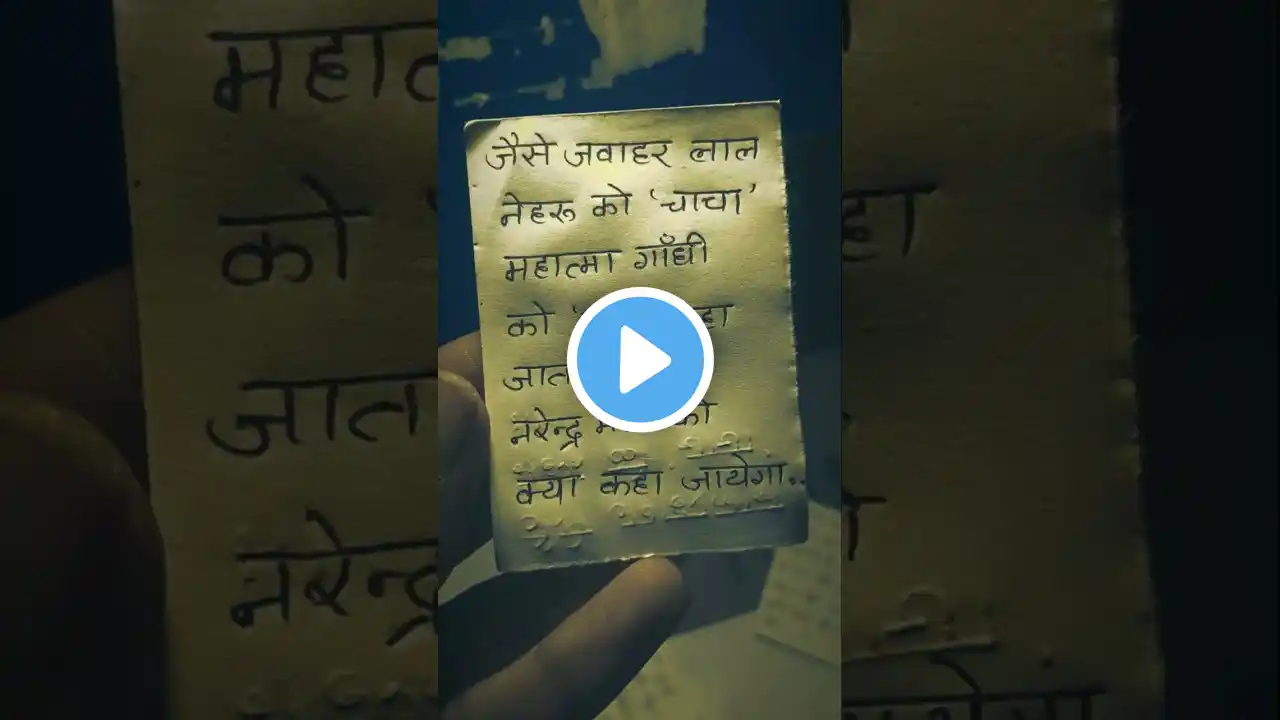 जैसे जवाहर लाल
नेहरू को 'चाचा'
महात्मा गाँधी
को
नरेन्द्र को
क्या कहा जायेगा..